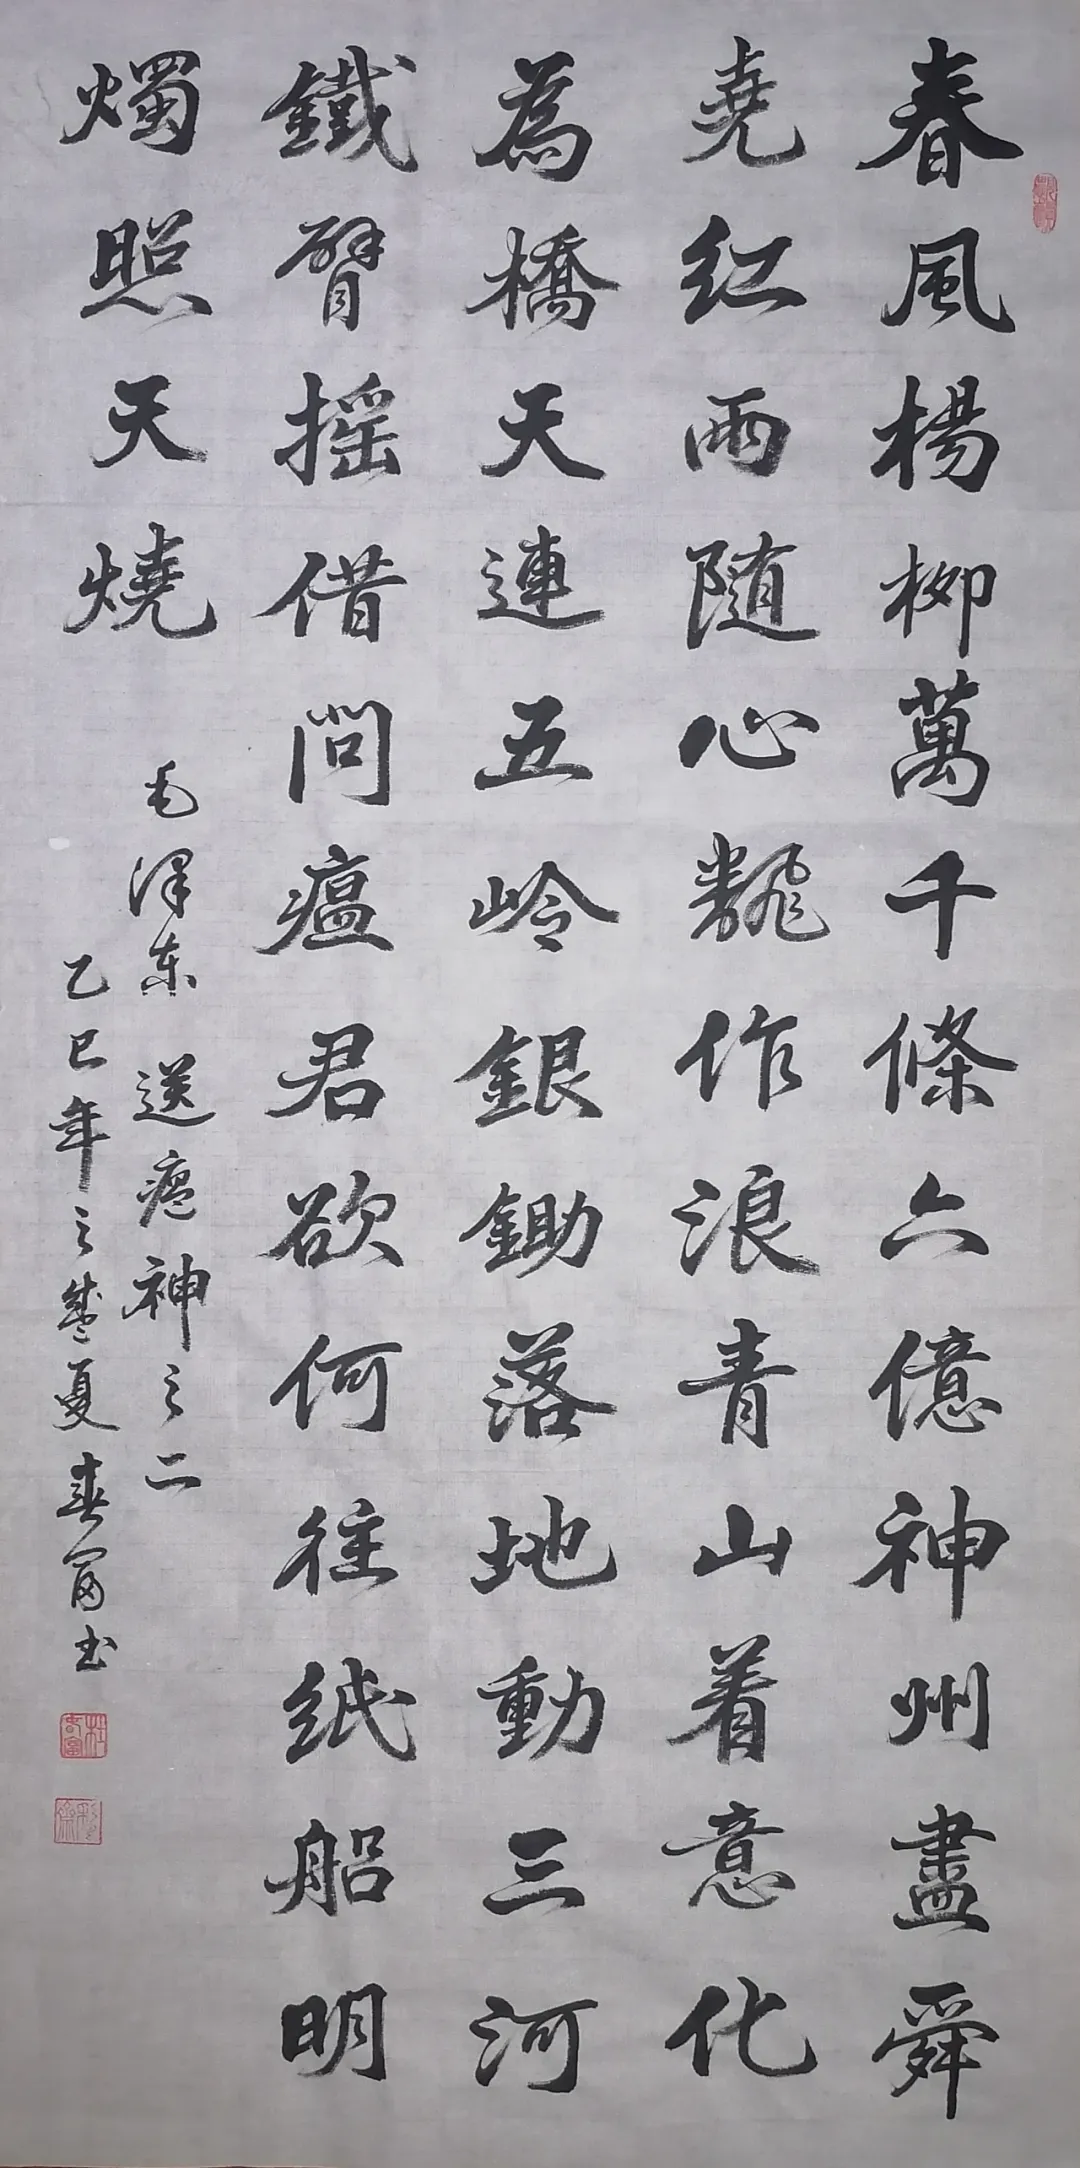 春風楊柳萬千條六億神州盡舜
堯紅雨随心飜作浪青山着意化
為橋天連五岭銀鋤落地動三河
鐵臂摇借問瘟君欲何往紙船明
燭照天燒
毛澤东送瘟神之二
乙巳年之盛夏春富书
杜春富